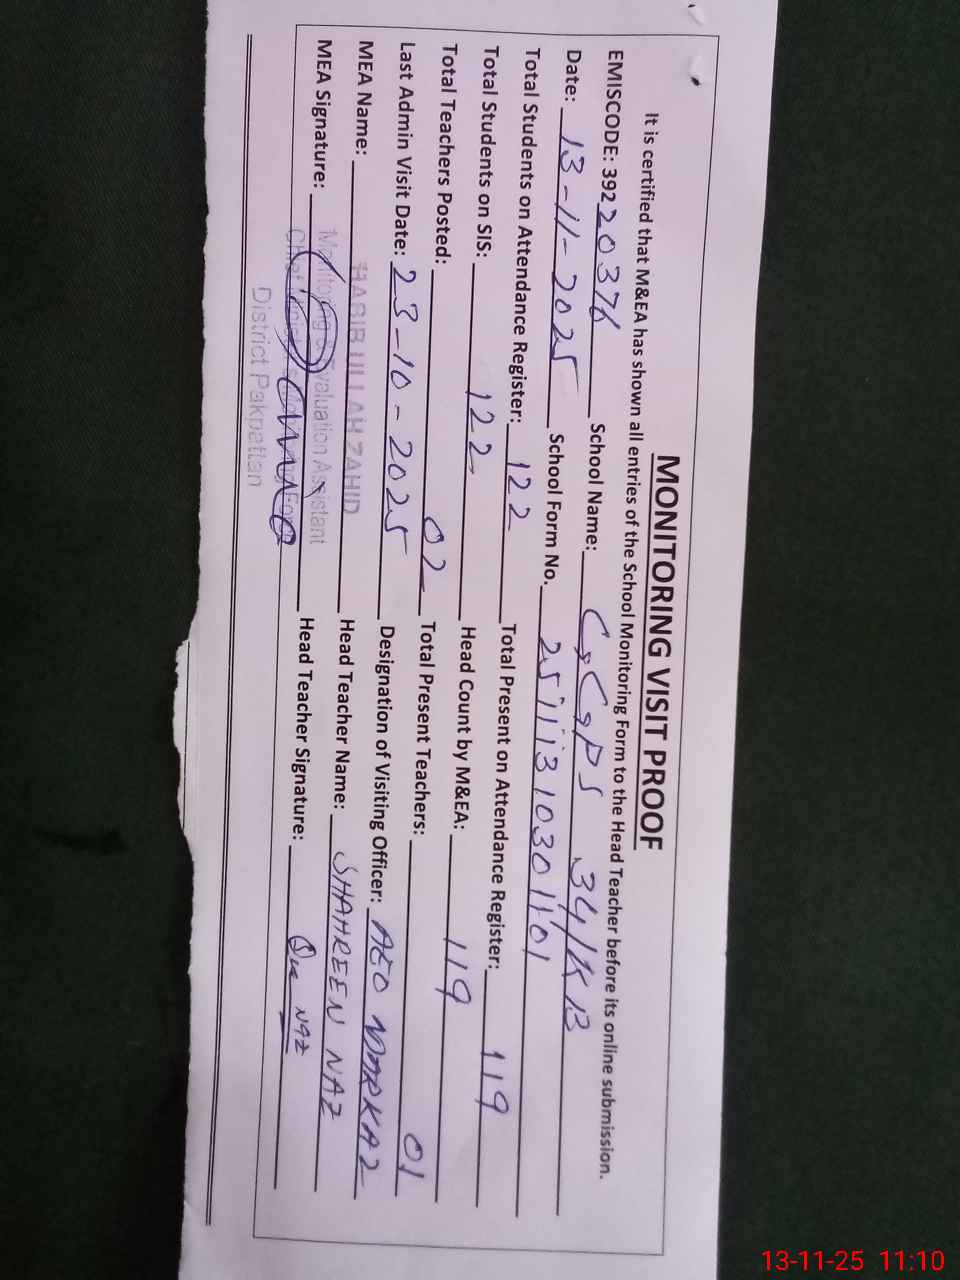 MONITORING VISIT PROOF
It is certified that M&EA has shown all entries of the School Monitoring Form to the Head Teacher before its online submission.
EMISCODE: 39220376 School Name: GGPS 34/KB
Date: 13-11-2025 School Form No. 25111310301101
Total Students on Attendance Register: 122 Total Present on Attendance Register: 119
Total Students on SIS: 122 Head Count by M&EA: 119
Total Teachers Posted: 02 Total Present Teachers: 01
Last Admin Visit Date: 23-10-2025 Designation of Visiting Officer: AEO MARKAZ
MEA Name: HABIB ULLAH ZAHID Head Teacher Name: SHAHREEN NAZ
MEA Signature: Head Teacher Signature: Naz
Monitoring & Evaluation Assistant
Chief Minister's Monitoring Force
District Pakpattan
13-11-25 11:10